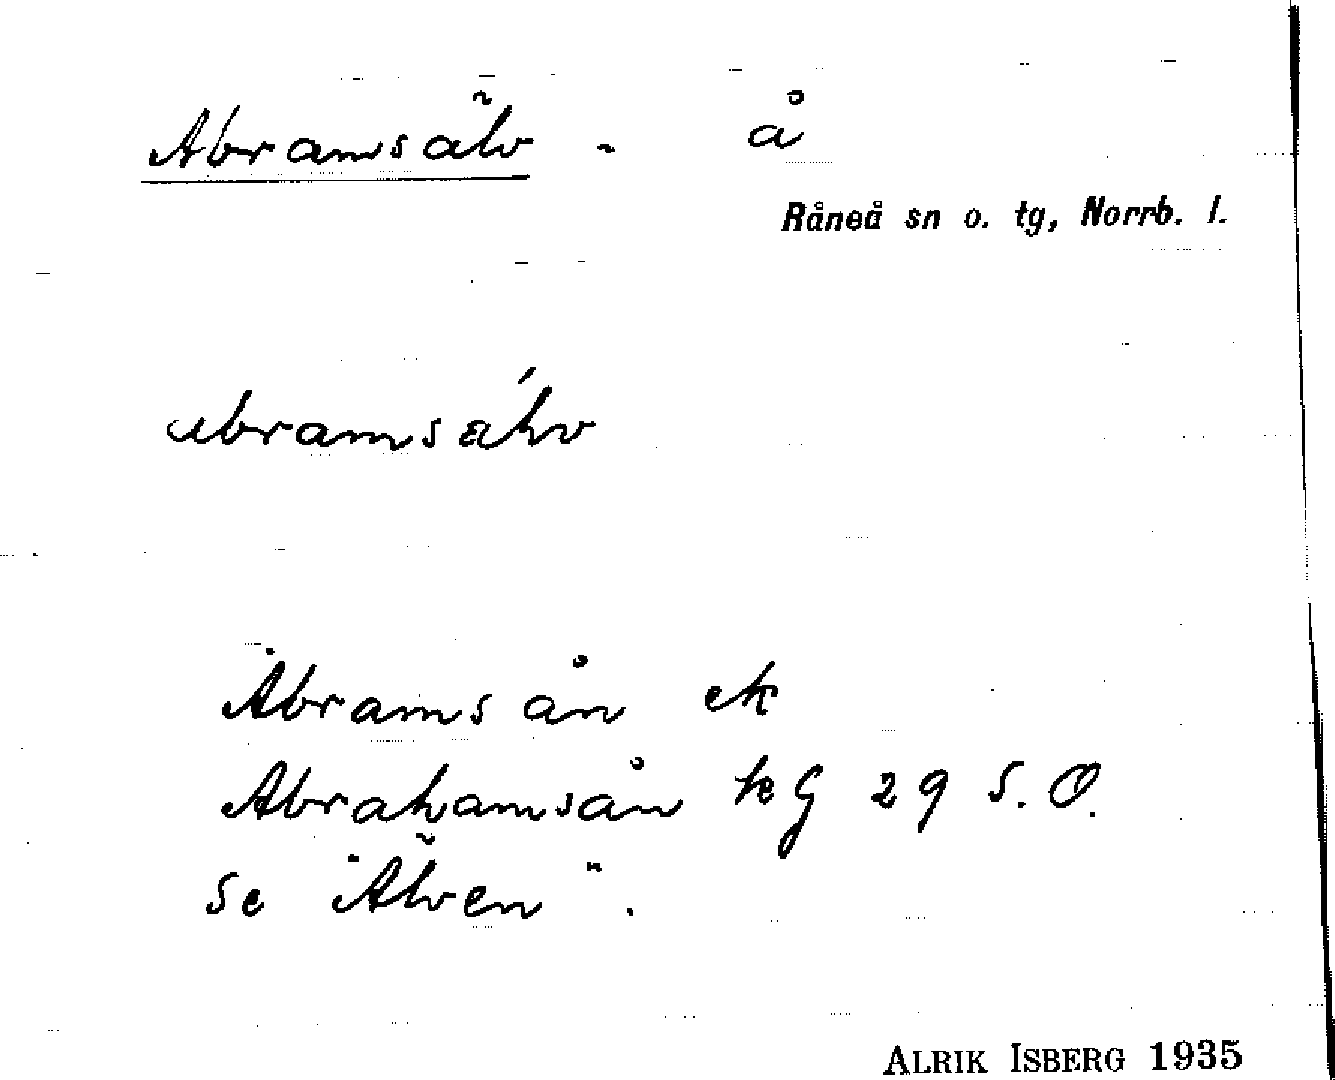 Abramsälv - å
Råneå sn o. tg, Norrb. l.
abramsæ´lv
Abramsån ek
Abrahamsån kG 29 S.O.
se "Älven".
ALRIK ISBERG 1935